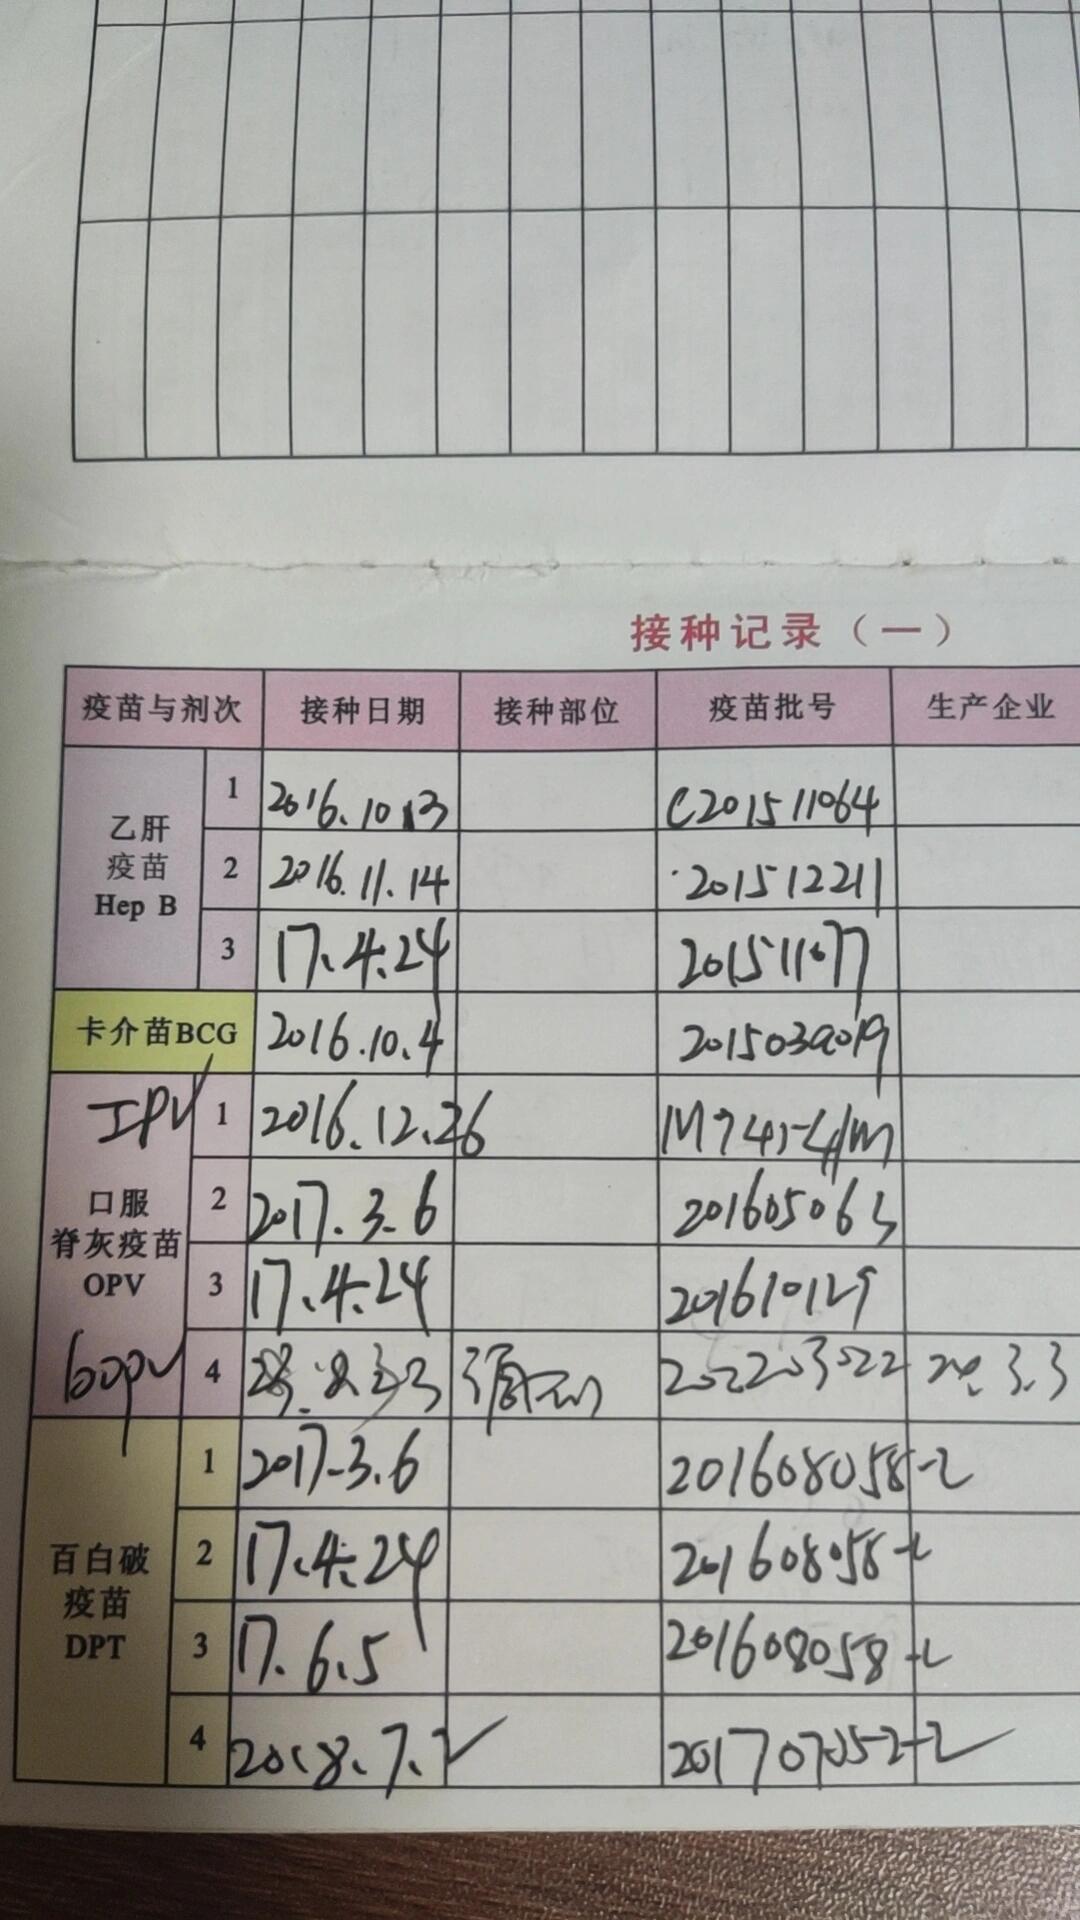 接种记录（一）
疫苗与剂次 接种日期 接种部位 疫苗批号 生产企业
乙肝疫苗 Hep B
1 2016.10.3 C201511064
2 2016.11.14 201512211
3 17.4.24 201511077
卡介苗BCG 2016.10.4
IPV
口服
脊灰疫苗
OPV
bopv
1 2016.12.26
2 2017.3.6 201605063
3 17.4.24 201610129
4 202203022
百白破
疫苗
DPT
1 2017.3.6 201608058-2
2 17.4.24 201608058-2
3 17.6.5 201608058-2
4 2018.7.2 201707052-2